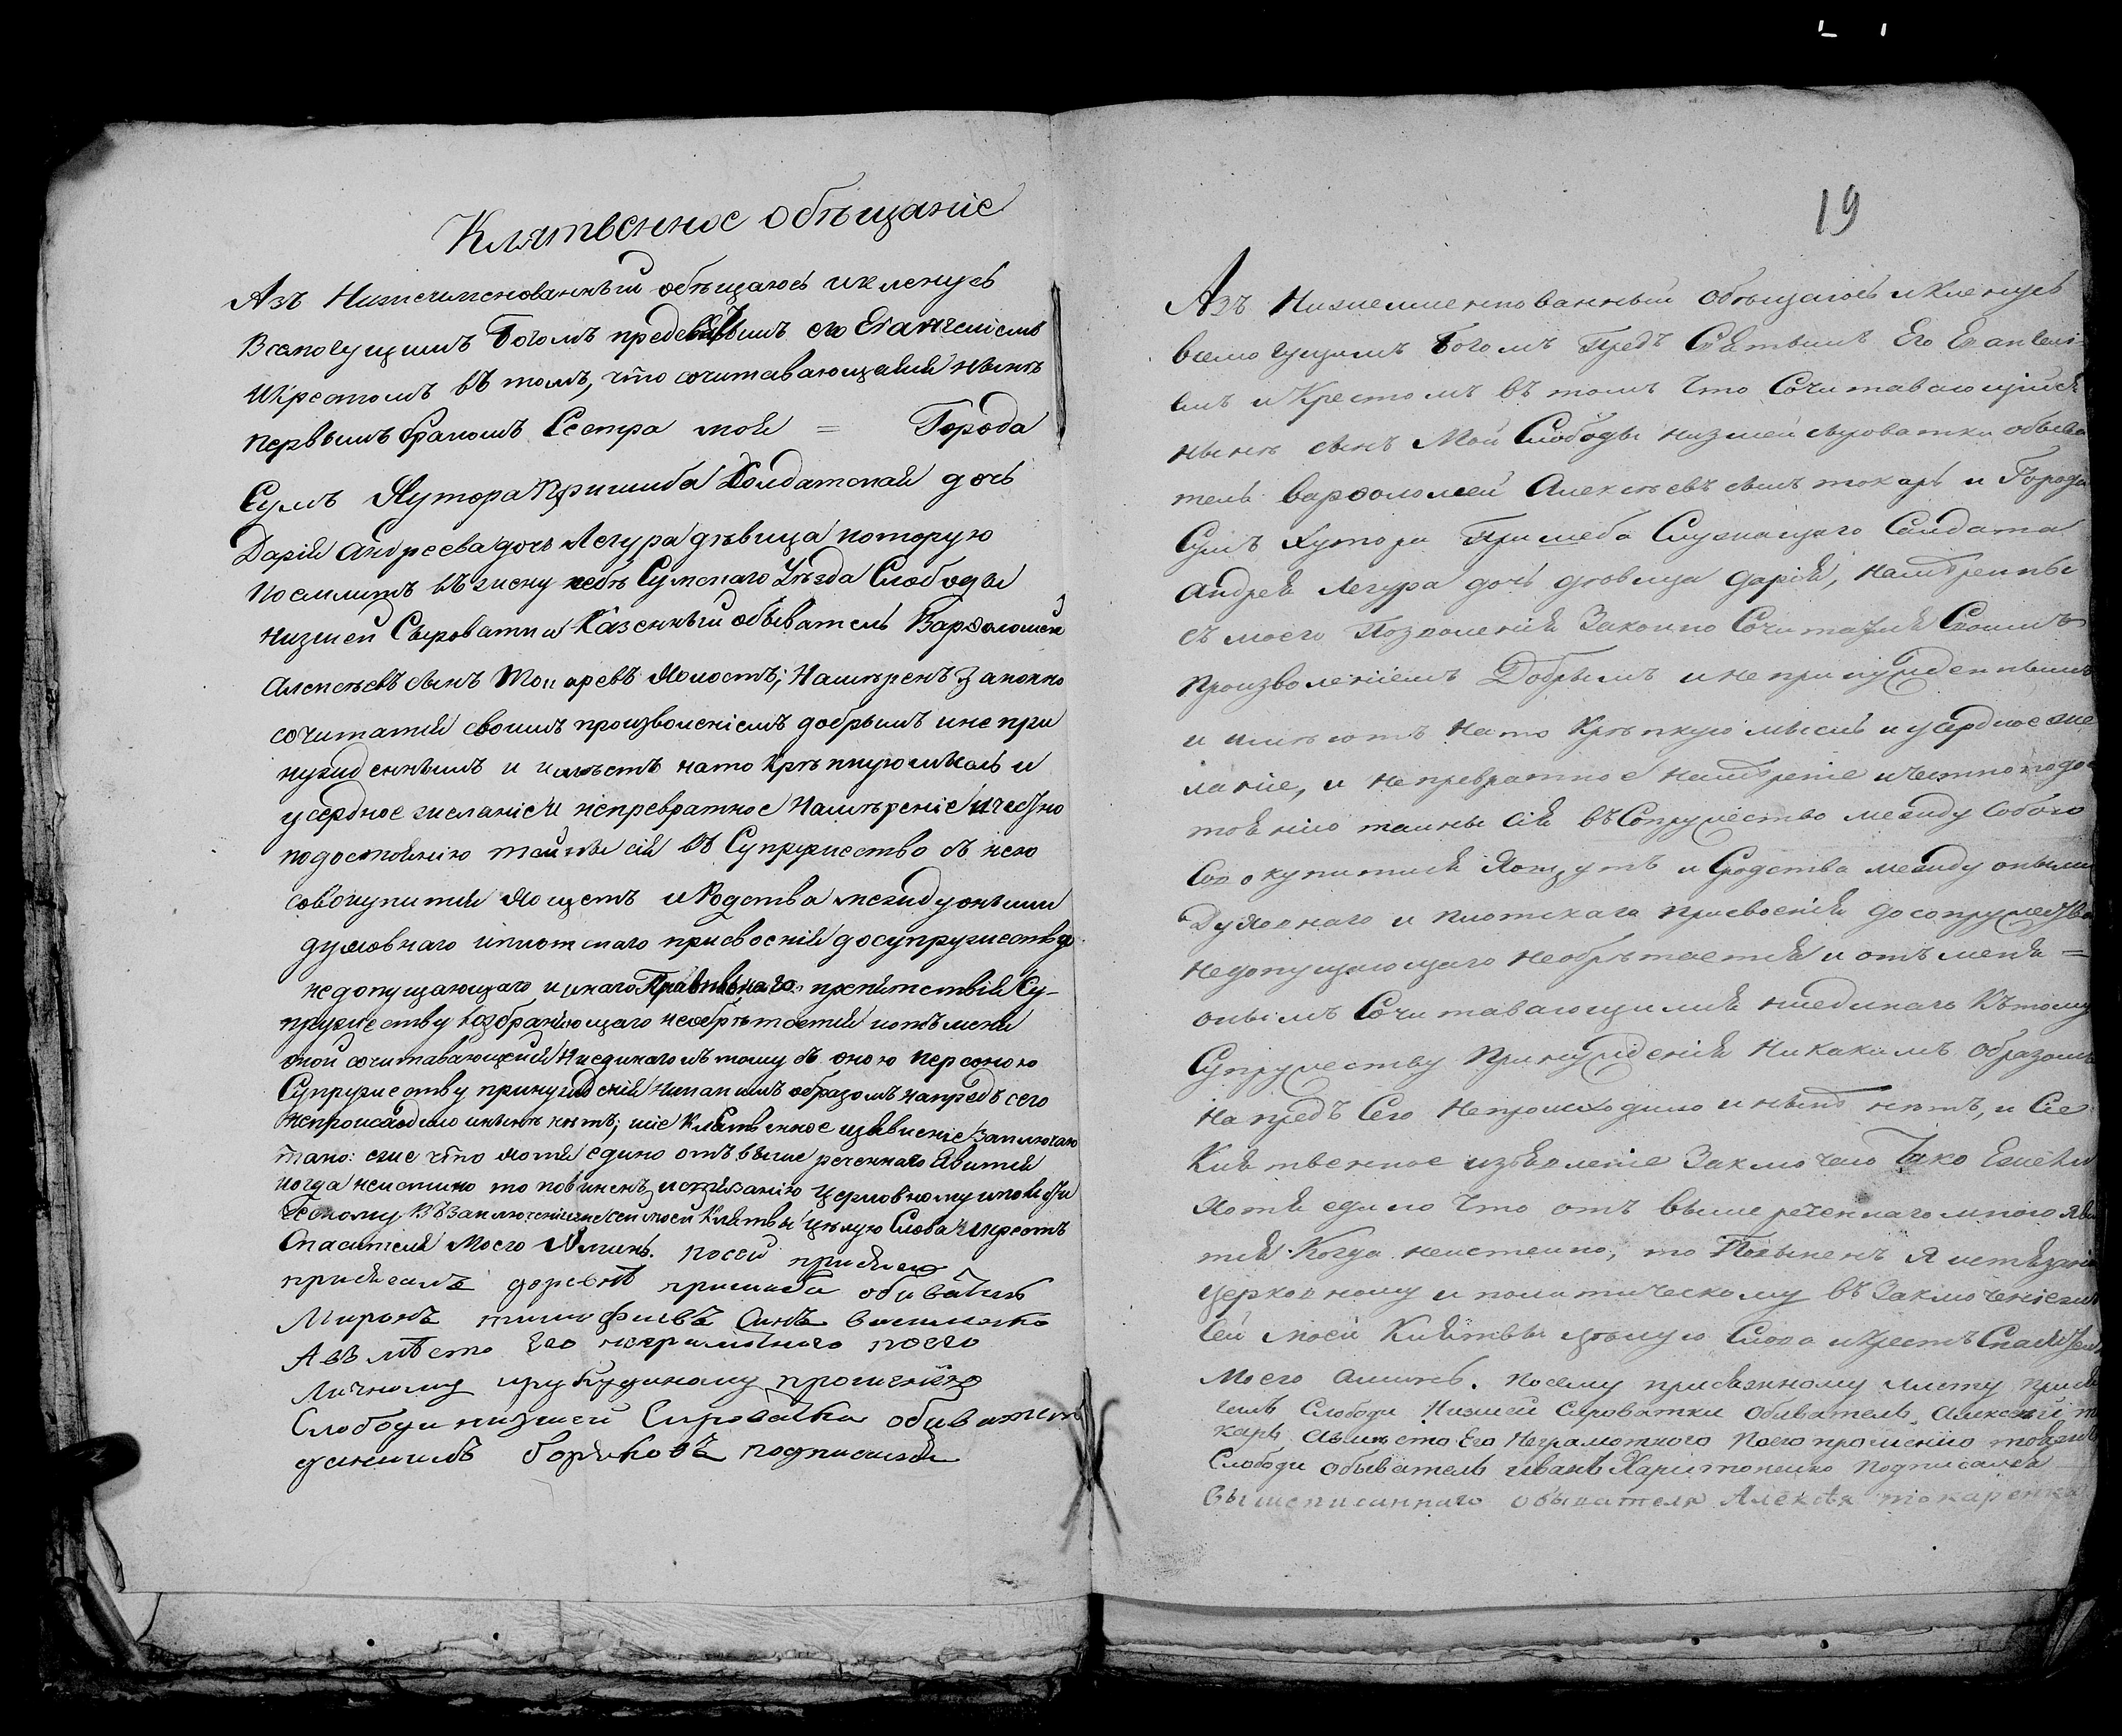 Клятвенное обѣщаніе
Азъ Нижеименованный обѣщаюсь и кленусь
Всемогущимъ Богомъ предъ его Евангеліемъ
и Крестомъ въ томъ, что сочитавающаяся нынѣ
первымъ бракомъ Сестра моя = Города
Сумъ Хутора Пришиба Солдатская дочь
Дарія Андреева дочь Легура дѣвица которую
поемлитъ въ жену себѣ Сумскаго Уѣзда Слободы
низшей Сыроватки Казенный обыватель Варѳоломей
Алексѣевъ сынъ Токаревъ холостъ; Намѣренъ Законно
сочитатися своимъ произволеніемъ добрымъ и не при
нужденнымъ и имѣетъ на то крѣпкую мысль и
усердное желаніе и непревратное намѣреніе и честно
по достоянію тайны сія въ Супружество съ нею
совокупитися хощетъ и Родства между оными
духовнаго и плотскаго присвоенія до супружества
недопущающаго и инаго Правильнаго препятствія Су-
пружеству возбраняющаго необрѣтается и отъ мене
оной сочитавающейся Ниединаго къ тому съ оною персоною
Супружеству принужденія Никакимъ образомъ напредъ сего
непроисходило и нынѣ нѣтъ; и сіе Клятвенное изъявленіе Заключаю
тако: еже что хотя едино отъ выше реченнаго явится
когда неистино то повиненъ истязанію Церковному и полити
ческому въ заключеніи же сей моей Клятвы цѣлую Слова и крестъ
Спасителя Моего Аминь. к сей присяги
присягалъ деревнѣ пришиба обыватель
Миронъ тимофѣевъ синъ
А вмѣсто Его неграмотного по его
Личному прошенію
Слободи нижшей Сироватки обиватель
данилъ боряковъ подписался
19
Азъ Нижеименнованный обѣщаюсь и кленусь
всемогущимъ Богомъ Предъ Святымъ Его Евангелі-
емъ и Крестомъ въ томъ что Сочитавающійся
нынѣ сынъ Мой Слободы низшей сыроватки обыва
тель варѳоломей Алексѣевъ сынъ токарь и Города
Сумъ хутора Пришеба Служащаго Салдата
Андрея Легура дочь дѣвица дарія, намѣренны
съ моего Позволенія Законно Сочитатся Своимъ
произволеніемъ Добрымъ и не принужденнымъ
и имѣютъ на то Крѣпкую мысль и усердное же
ланіе, и непревратное намѣреніе и честно по дос
тоянію тайны сія въ Сопружество между собою
Совокупитися хощутъ и Сродства между оными
Духовнаго и плотскаго присвоенія до сопружества
недопущающаго необрѣтается и отъ меня =
онымъ Сочитавающимся ниединаго Къ тому
Супружеству Принужденія Никакимъ образомъ
На предъ Сего Непроисходило и нынѣ нѣтъ, и Сіе
Клятвенное изъявленіе Заключаю Тако Ежели
хотя едино что отъ выше реченнаго мною яви
тся Когда неистенно, то Повиненъ я истязанію
Церковному и политическому въ Заключеніежъ
сей моей Клятвы цѣлую Слова и крестъ Спасителя
Моего Аминь. по сему присяжному листу прися
галъ Слободи Низшей сероватки обиватель Алексѣй то
карь а вмѣсто Его Неграмотного По его прошенію тояжъ
Слободи обыватель иванъ Харитоненко подписался
Вышеписаннаго обывателя Алексѣя токаренка